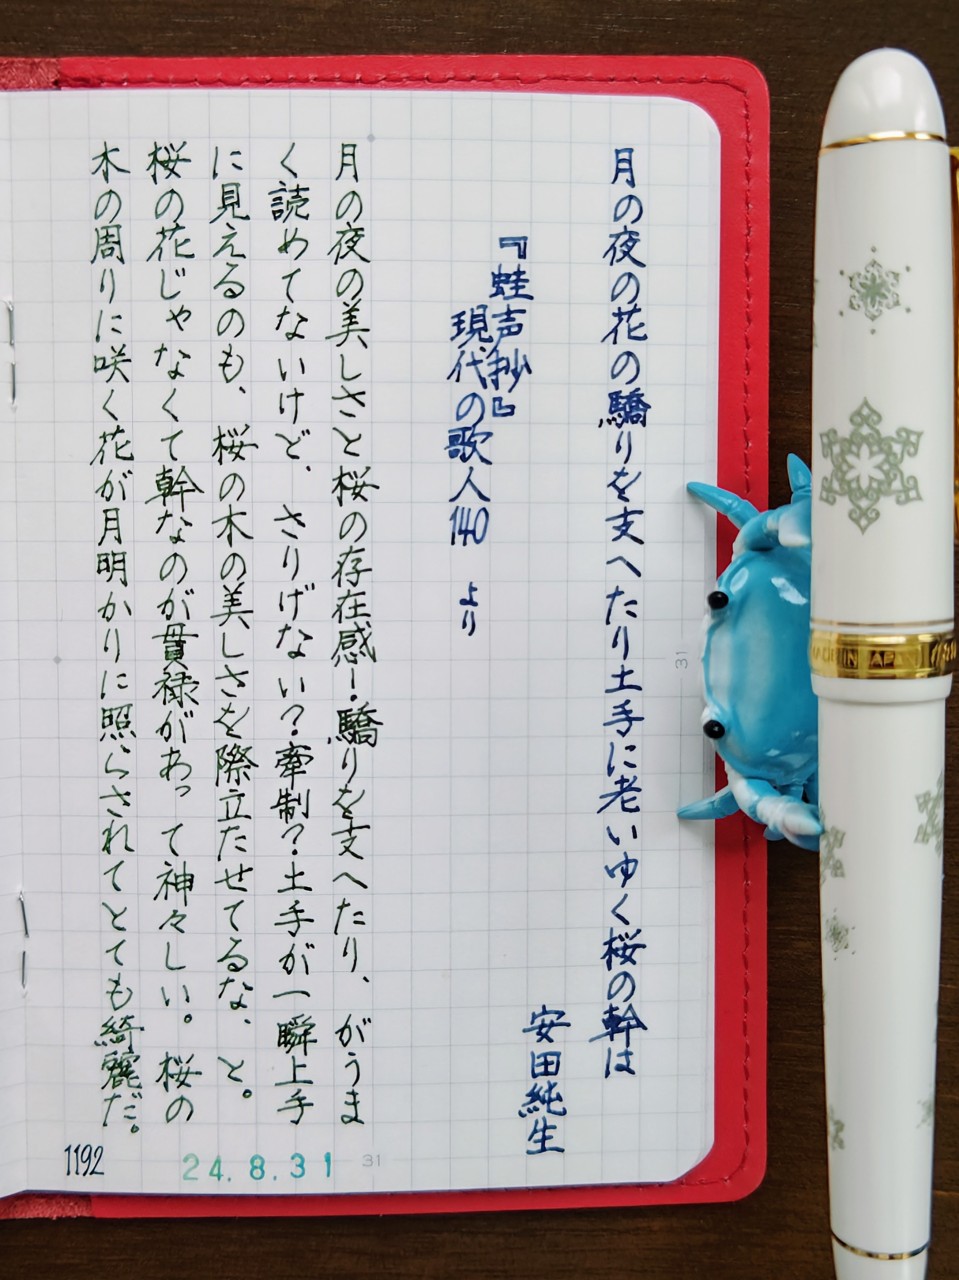 月の夜の花の驕りを支へたり土手に老いゆく桜の幹は
安田純生
『蛙声抄』
現代の歌人140 より
月の夜の美しさと桜の存在感ー!驕りを支へたり、がうま
く読めてないけど、さりげない?牽制?土手が一瞬上手
に見えるのも、桜の木の美しさを際立たせてるな、と。
桜の花じゃなくて幹なのが貫禄があって神々しい。桜の
木の周りに咲く花が月明かりに照らされてとても綺麗だ。
1192
24.8.31
31
31
JAPAN